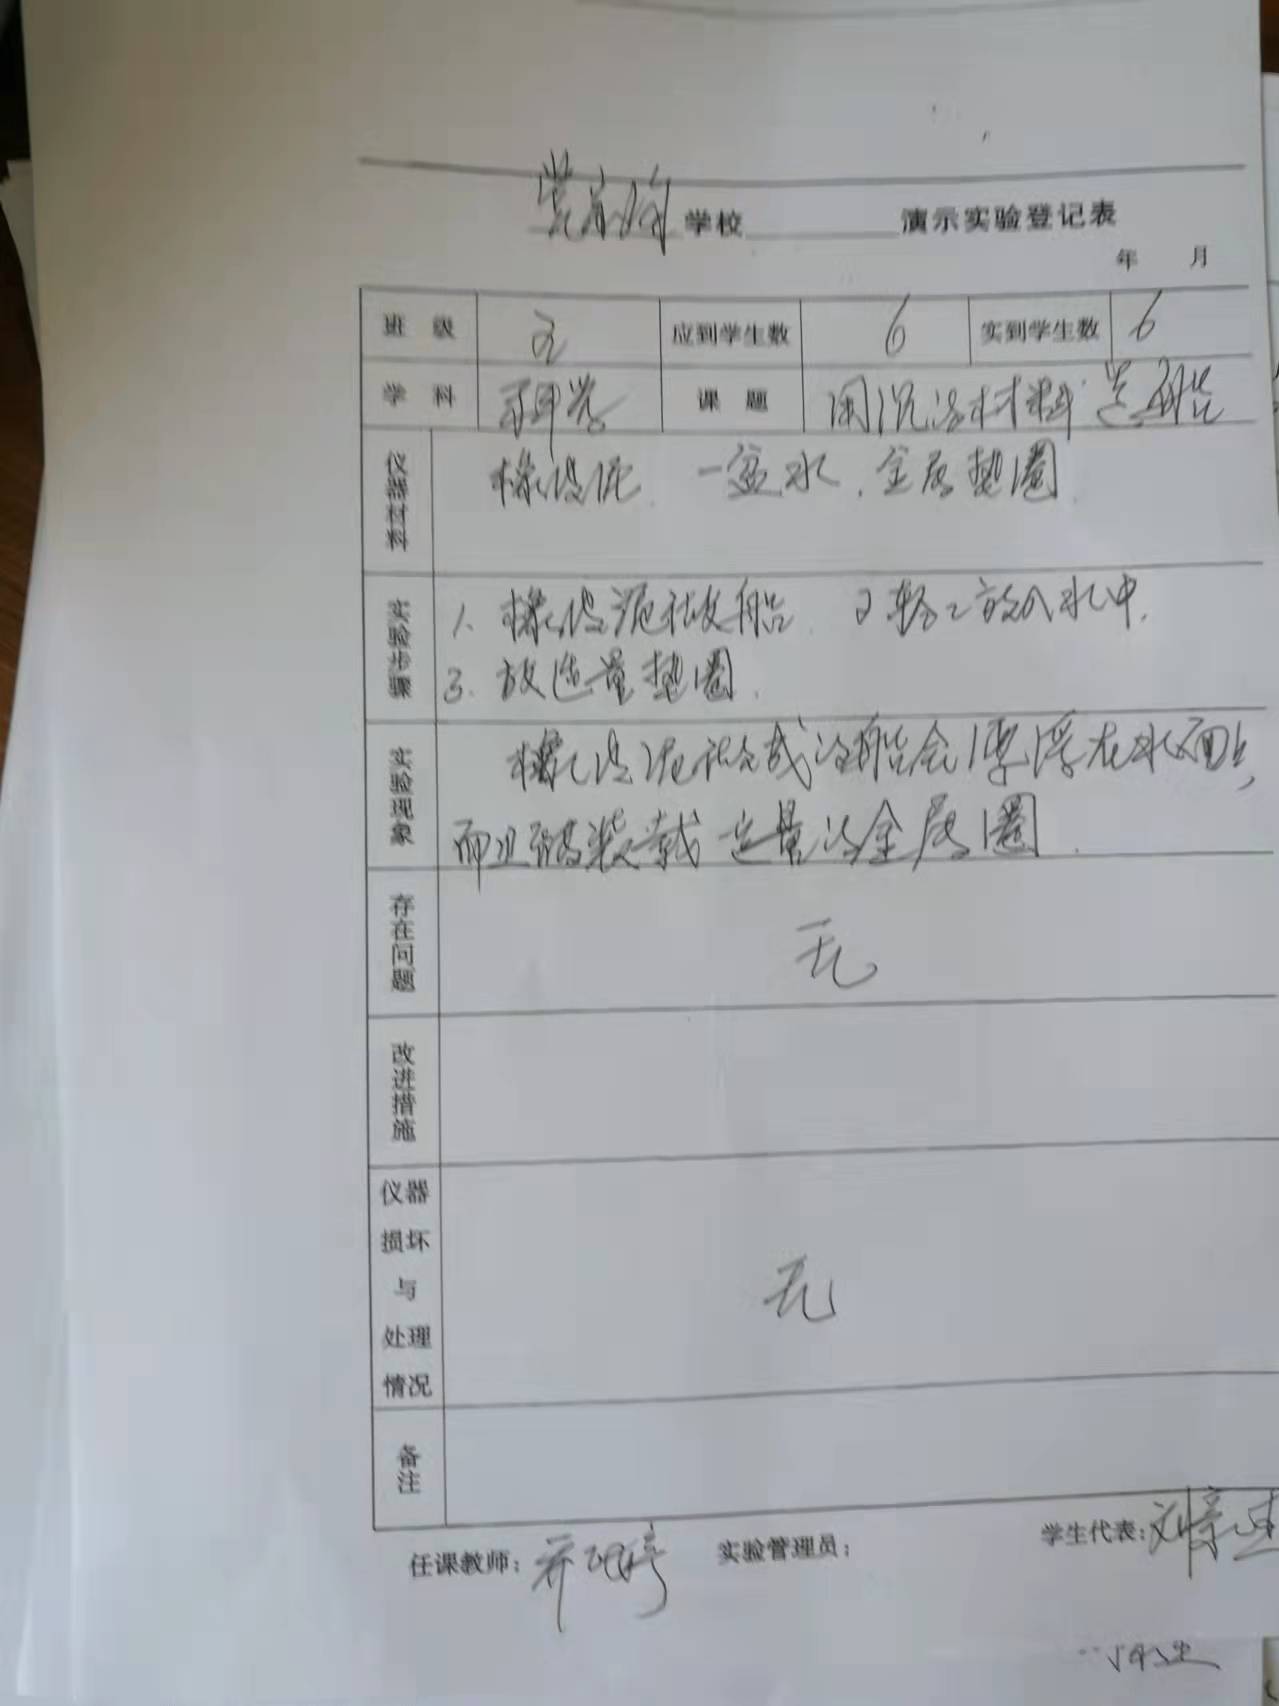 学校 演示实验登记表
年 月
班 级 五 应到学生数 6 实到学生数 6
学 科 科学 课 题 用沉的材料造船
仪器材料 橡皮泥、一盆水、金属垫圈
实验步骤 1、橡皮泥做船 2轻轻放入水中.
3、放适量垫圈.
实验现象 橡皮泥做成的船会漂浮在水面上,
而且能装载一定量的金属圈.
存在问题 无
改进措施
仪器损坏与处理情况 无
备注
任课教师: 实验管理员: 学生代表: